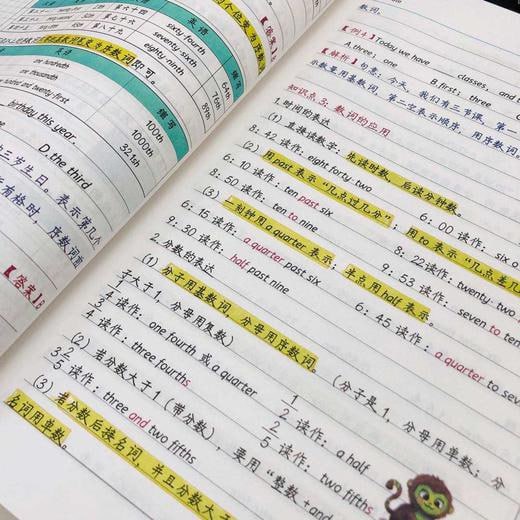 英语
缩写
第六十四
sixty fourth
64th
第七十六
seventy sixth
76th
第八十九
eighty ninth
89th
序数词即可。
英语
缩写
one hundredth
100th
one thousandth
1000th
hundred and twenty-first
321st
birthday this year.
D. the third
三岁生日。表示第几个
序数词前
【答案】B
数词。
【例1】Today we have classes, and
A. three; one
B. first; three
【解析】句意:今天,我们有三节课,第一
示数量用基数词,第二空表示顺序,用序数词。
知识点3:数词的应用
1.时间的表达
(1)直接读数字:先读时数,后读分钟数。
8:42 读作:eight forty-two
6:00 读作:six o
(2)用past表示“几点过几分”;用to表示“几点差几
6:10 读作:ten past six
8:50 读作:ten to nine
8:22 读作:twenty-two
(3)一刻钟用a quarter表示;半点用half表示。
9:53 读作:seven to ten
6:15 读作:a quarter past six
9:30 读作:half past nine
6:45 读作:a quarter to se
2.分数的表达
(1)分子用基数词,分母用序数词。(分子是1,分母用单数;分
子大于1,分母用复数)
1/4 读作:one fourth 或 a quarter
1/2 读作:a half
3/4 读作:three fourths
2/5 读作:two fifths
(2)若分数大于1(带分数),要用“整数+and
3 2/5 读作:three and two fifths
(3)若分数后接名词,并且分数大于
名词用单数。